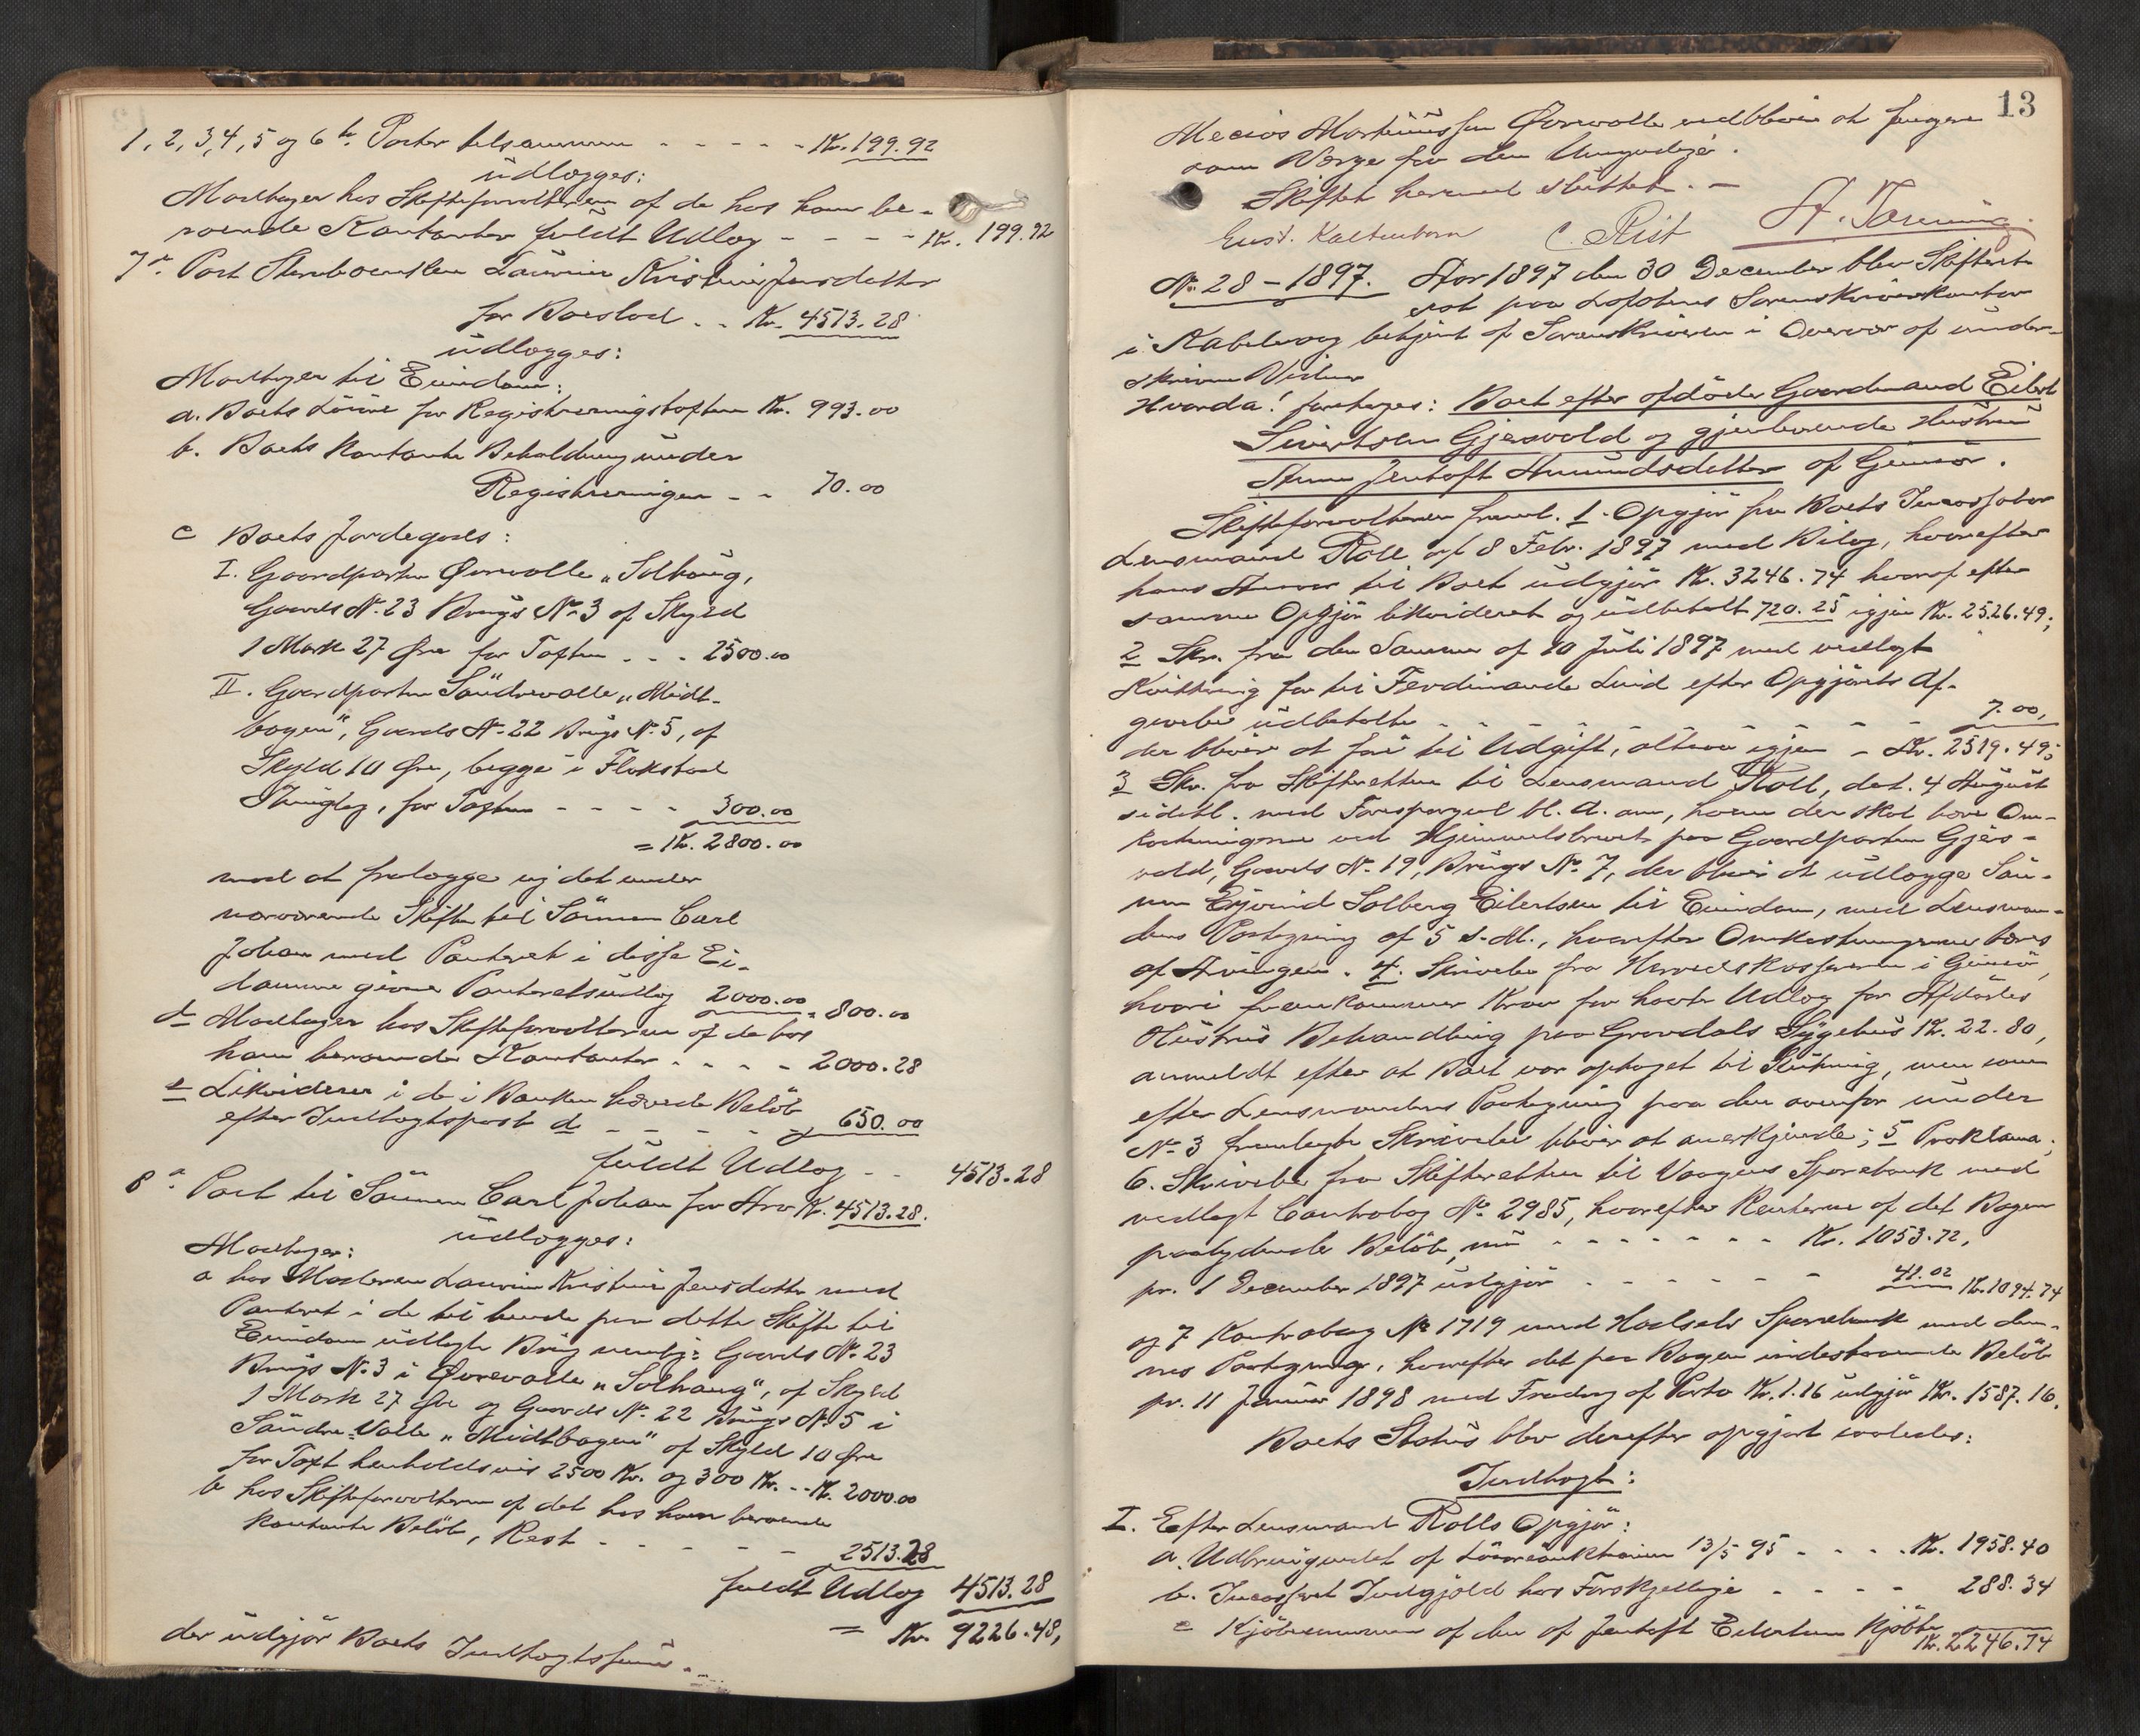 1, 2, 3, 4, 5 og 6te Poster tilsammen - - - - - Kr. 199.92
udlægges:
Modtager hos Skifteforvalteren af de hos ham be-
roende Kontanter fuldt Udlæg - - - - Kr. 199.92
7de Post Laurine Kristine Jensdatter
for Boeslod - - Kr. 4513.28
udlægges:
Modtager til Eiendom:
a. Boets Løsøre for Registreringstaxten Kr. 993.00
b. Boets kontante Beholdning under
Registreringen - - 70.00
c Boets Jordegods:
I. Gaardparten Ørsvolle "Solhaug,
Gaards No. 23 Brugs No. 3 af Skyld
1 Mark 27 Øre for Taxten - - - 2500.00
II. Gaardparten Søndrevolle "Midt-
bogen", Gaards No. 22 Brugs No. 5, af
Skyld 10 Øre, begge i Flakstad
Thinglag, for Taxten - - - - 300.00
= Kr. 2800.00
mod at fralægge sig det under
nærværende Skifte til Sønnen Carl
Johan med Panteret i disse Ei-
domme givne Panteretsudlæg 2000.00 = 800.00
d Modtager hos Skifteforvalteren af de hos
ham beroende Kontanter - - - - 2000.28
e Likviderer i de i Banken hævede Beløb
efter Indtægtspost d - - - - - 650.00
fuldt Udlæg - - 4513.28
8de Post til Sønnen Carl Johan for Arv Kr. 4513.28.
udlægges:
Modtager:
a hos Moderen Laurine Kristine Jensdatter med
Panteret i de til hende paa dette Skifte til
Eiendom udlagte Brug nemlig: Gaards No. 23
Brugs No. 3 i Ørsvolle "Solhaug", af Skyld
1 Mark 27 Øre og Gaards No. 22 Brugs No. 5 i
Søndre-Volle "Midtbogen" af Skyld 10 Øre
for Taxt henholdsvis 2500 Kr. og 300 Kr. - - Kr. 2000.00
b hos Skifteforvalteren af det hos ham beroende
kontante Beløb, Rest - - - - - - 2513.28
fuldt Udlæg 4513.28
= Kr. 9226.48,
der udgjør Boets Indtægtssum.
13
Mecius Martinussen Ørsvolle vedbliver at fungere
som Værge for den Umyndige.
Skiftet hermed sluttet. -
Gust. Kaltenborn C. Rist
No. 28 - 1897. Aar 1897 den 30 December blev Skifteret
sat paa Lofotens Sorenskriverkontor
i Kabelvaag betjent af Sorenskriveren i Overvær af under-
skrevne Vidner
Hvorda! foretoges: Boet efter afdøde Gaardmand Eilert
Sivertsen Gjersvold og gjenlevende Hustru
Anne Jentoft Amundsdatter af Gimsø.
Skifteforvalteren freml. 1. Opgjør fra Boets Incassator
Lensmand Roll af 8 Febr. 1897 med Bilag, hvorefter
hans Ansvar til Boet udgjør Kr. 3246.74 hvoraf efter
samme Opgjør likvideret og udbetalt 720.25 igjen Kr. 2526.49;
2 Skr. fra den Samme af 10 Juli 1897 med vedlagt
Kvittering for til Ferdinande Lind efter Opgjørets Af-
givelse udbetalte - - - - - - - - 7.00,
der bliver at føre til Udgift, altsaa igjen - Kr. 2519.49;
3 Skr. fra Skifteretten til Lensmand Roll, dat. 4 August
sidstl. med Forespørgsel bl. a. om, hvem der skal bære Om-
kostningerne ved Hjemmelsbrevet paa Gaardparten Gjers-
vold, Gaards No. 19, Brugs No. 7, der bliver at udlægge Søn-
nen Ejvind Solberg Eilertsen til Eiendom, med Lensman-
dens Paategning af 5 s.M., hvorefter Omkostningerne bæres
af Arvingen. 4. Skrivelse fra Herredskassereren i Gimsø,
hvori fremkommer Krav for havte Udlæg for Afdødes
Hustrus Behandling paa Gravdals Sygehus Kr. 22.80,
anmeldt efter at Boet var optaget til Slutning, men som
efter Lensmandens Paategning paa den ovenfor under
No. 3 fremlagte Skrivelse bliver at anerkjende; 5 Proklama;
6. Skrivelse fra Skifteretten til Vaagens Sparebank med
vedlagt Contrabog No. 2985, hvorefter Renterne af det Bogen
paalydende Beløb, nu - - - - - - - Kr. 1053.72,
pr. 1 December 1897 udgjør - - - - - - 41.02 Kr. 1094.74
og 7 Kontrabog No. 1719 med Hadsels Sparebank med den-
nes Paategning, hvorefter det paa Bogen indestaaende Beløb
pr. 11 Januar 1898 med Fradrag af Porto Kr. 1.16 udgjør Kr. 1587.16.
Boets Status blev derefter opgjort saaledes:
Indtægt:
I. Efter Lensmand Rolls Opgjør:
a. Udbringendet af Løsøreauktionen 13/5 95 - - - - Kr. 1958.40
b. Incasseret Indgjæld hos Forskjellige - - - - 288.34
c Kjøbesummen af den af Jentoft Eilertsen kjøbte
Kr. 2246.74